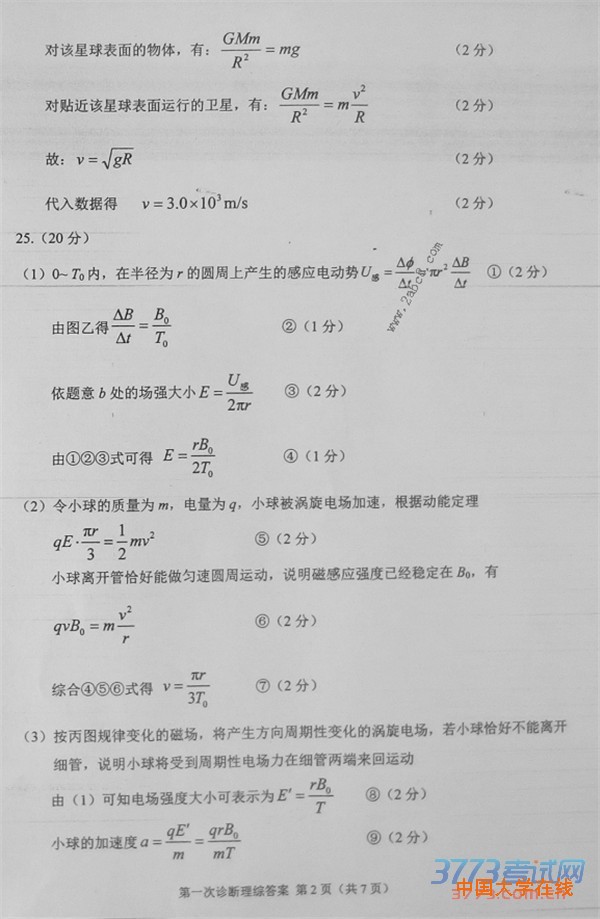 对该星球表面的物体，有：GMm/R² = mg （2 分）
对贴近该星球表面运行的卫星，有：GMm/R² = m v²/R （2 分）
故：v = √gR （2 分）
代入数据得 v = 3.0×10³ m/s （2 分）
25.（20 分）
（1）0~ T₀ 内，在半径为 r 的圆周上产生的感应电动势 U感 = Δϕ/Δt πr² ΔB/Δt ①（2 分）
www.2abc8.com
由图乙得 ΔB/Δt = B₀/T₀ ②（1 分）
依题意 b 处的场强大小 E = U感/2πr ③（2 分）
由①②③式可得 E = rB₀/2T₀ ④（1 分）
（2）令小球的质量为 m，电量为 q，小球被涡旋电场加速，根据动能定理
qE · πr/3 = 1/2 mv² ⑤（2 分）
小球离开管恰好能做匀速圆周运动，说明磁感应强度已经稳定在 B₀，有
qvB₀ = m v²/r ⑥（2 分）
综合④⑤⑥式得 v = πr/3T₀ ⑦（2 分）
（3）按丙图规律变化的磁场，将产生方向周期性变化的涡旋电场，若小球恰好不能离开
细管，说明小球将受到周期性电场力在细管两端来回运动
由（1）可知电场强度大小可表示为 E′ = rB₀/T ⑧（2 分）
小球的加速度 a = qE′/m = qrB₀/mT ⑨（2 分）
第一次诊断理综答案 第 2 页（共 7 页）
3773考试网
中国大学在线
3773.com.cn